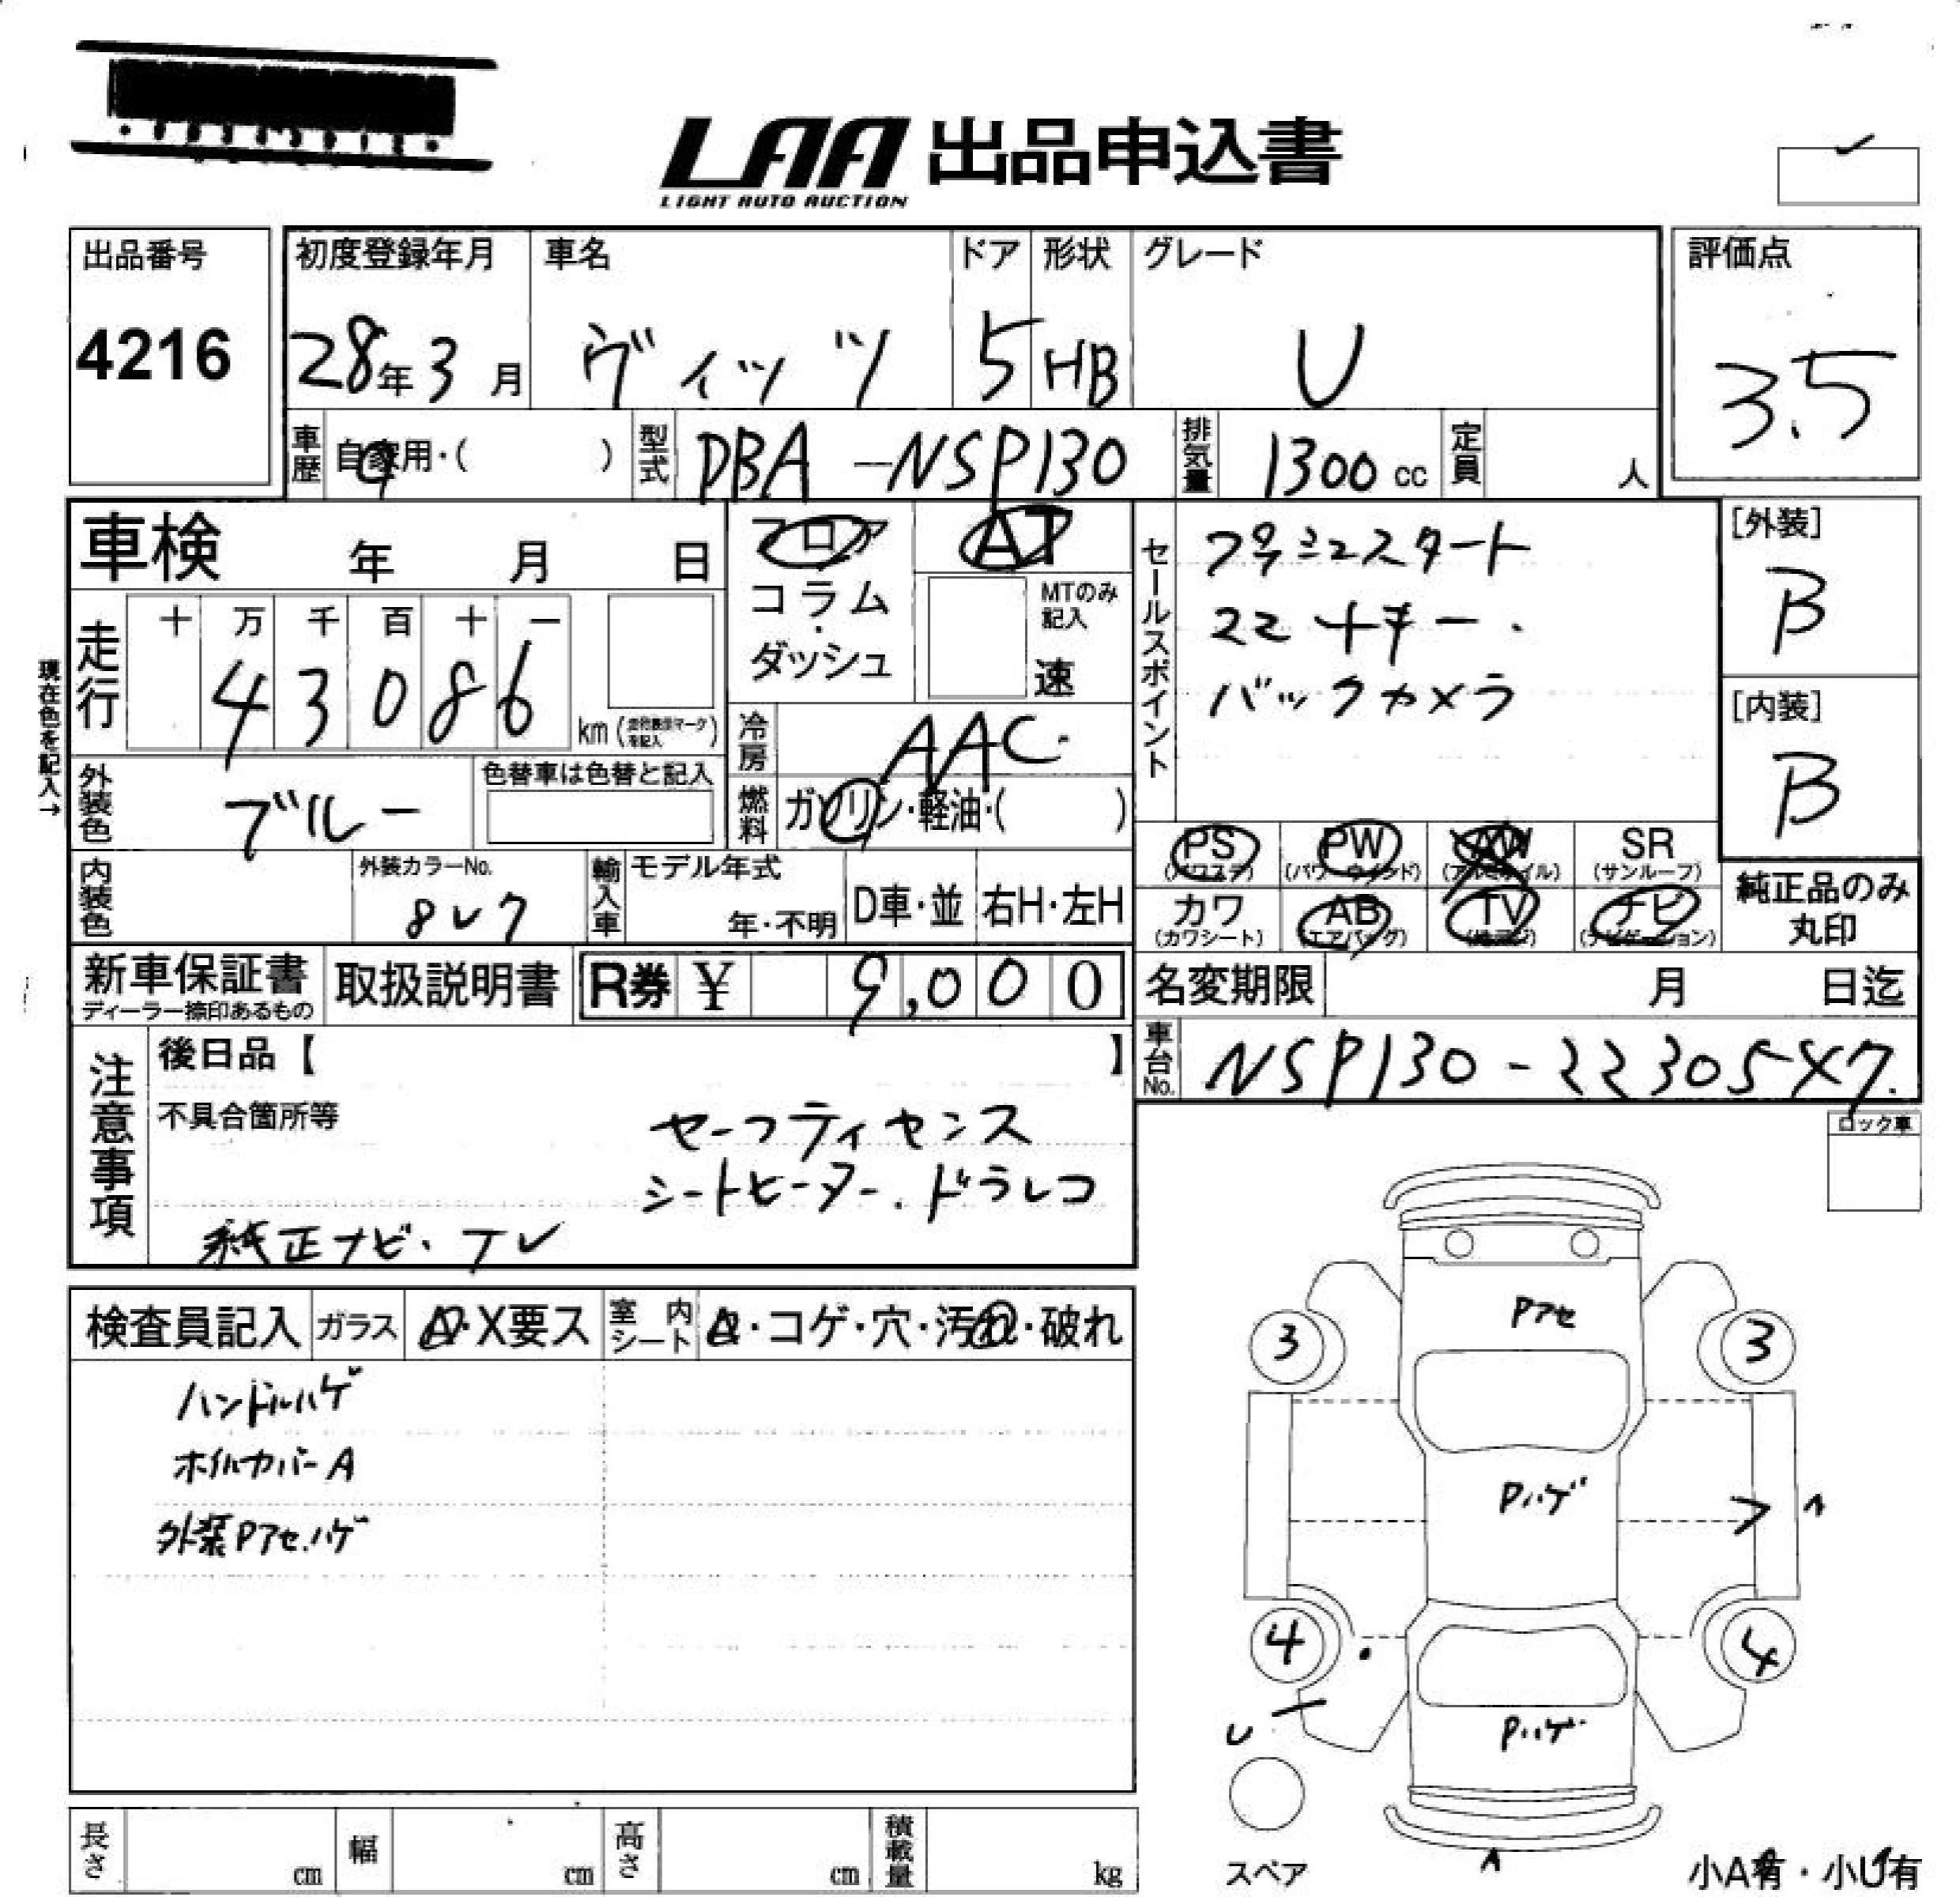 LAA 出品申込書
LIGHT AUTO AUCTION
出品番号
4216
初度登録年月
28年3月
車名
ヴィッツ
ドア
5
形状
HB
グレード
U
評価点
3.5
車歴
自家用・( )
型式
DBA-NSP130
排気量
1300cc
定員
人
車検 年 月 日
フロア
コラム
・
ダッシュ
AT
MTのみ
記入
速
セールスポイント
プッシュスタート
スマートキー.
バックカメラ
[外装]
B
[内装]
B
現在色を記入→
走行
十 万 千 百 十 一
4 3 0 8 6
km
冷房
AAC
燃料
ガソリン・軽油・( )
外装色
ブルー
色替車は色替と記入
PS
(パワステ)
PW
(パワーウインド)
AW
(アルミホイル)
SR
(サンルーフ)
カワ
(カワシート)
AB
(エアバッグ)
TV
ナビ
(ナビゲーション)
純正品のみ
丸印
内装色
外装カラーNo.
8レ7
輸入車
モデル年式
年・不明
D車・並
右H・左H
新車保証書
ディーラー捺印あるもの
取扱説明書
R券 ¥ 9,000
名変期限 月 日迄
車台No.
NSP130-22305X7.
注意事項
後日品【 】
不具合箇所等
セーフティセンス
シートヒーター.ドラレコ
純正ナビ・TV
ロック車
検査員記入
ガラス
A・X要ス
室内シート
・コゲ・穴・汚れ・破れ
ハンドルハゲ
ホイルカバーA
外装Pアセ.ハゲ
Pアセ
3
3
Pハゲ
4
4
U
Pハゲ
A
スペア
小A有・小U有
長さ
cm
幅
cm
高さ
cm
積載量
kg